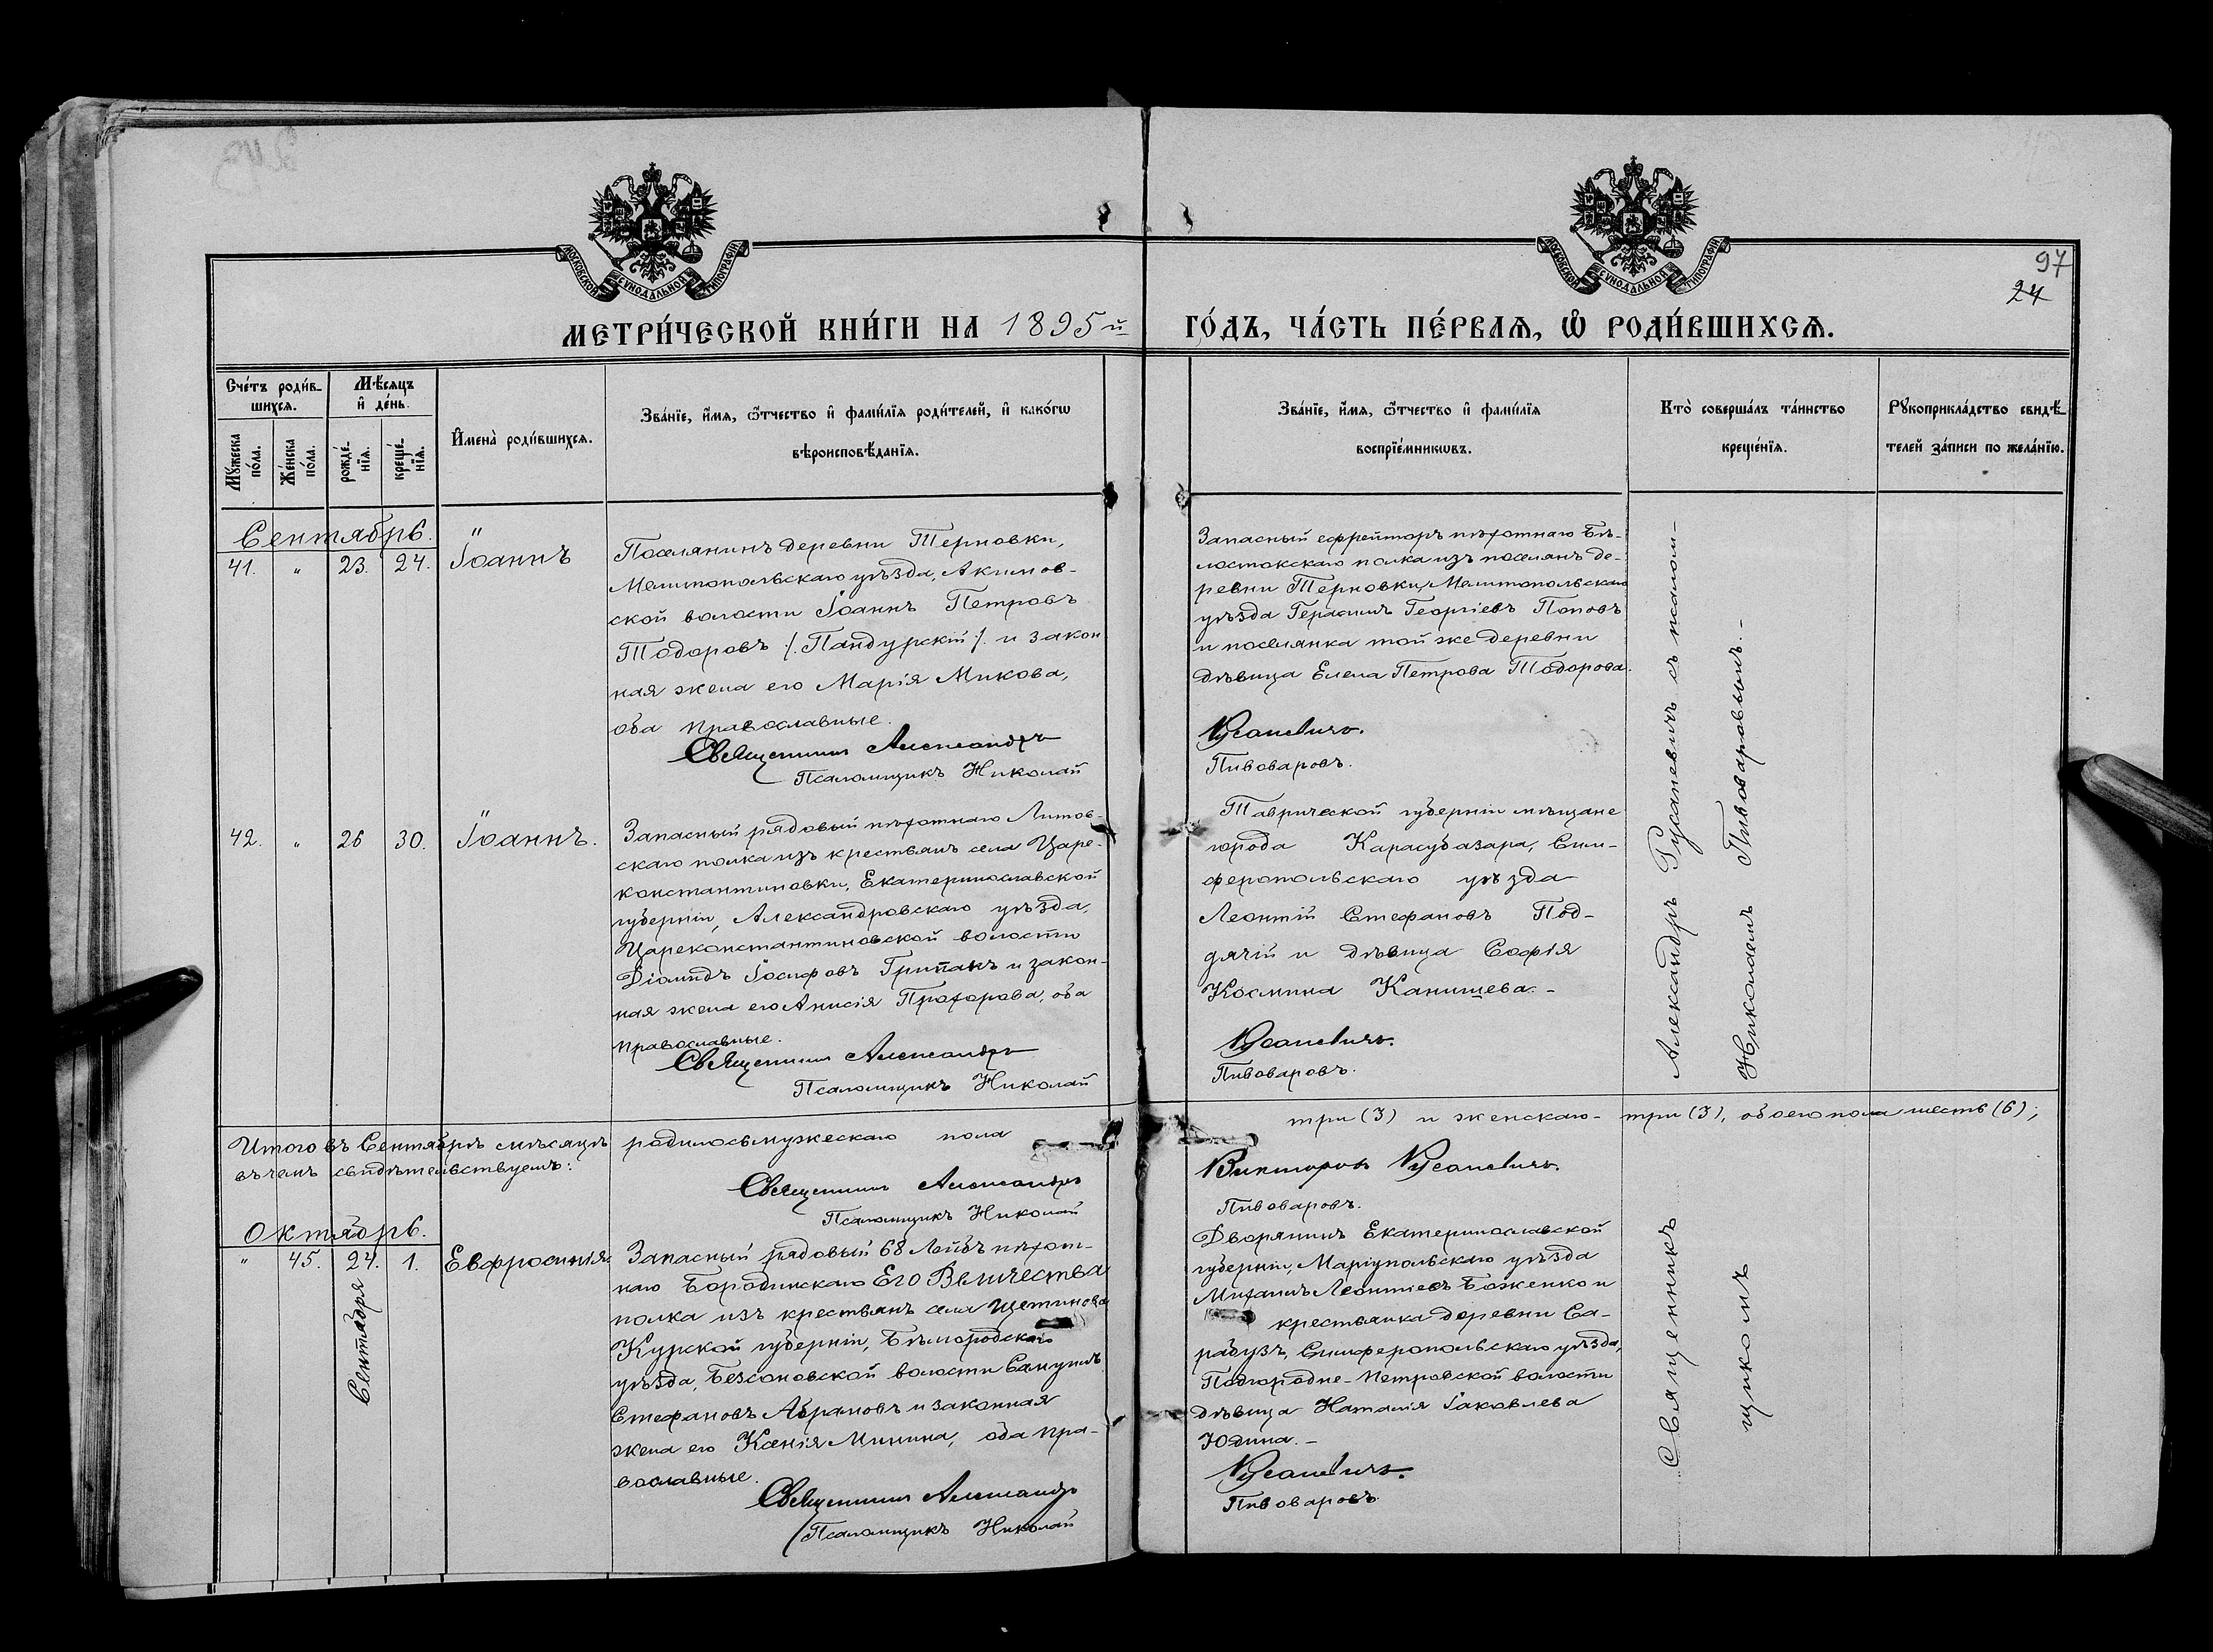 97
24
МОСКОВСКОЙ СѴНОДАЛЬНОЙ ТИПОГРАФІИ
МОСКОВСКОЙ СѴНОДАЛЬНОЙ ТИПОГРАФІИ
МЕТРИ́ЧЕСКОЙ КНИ́ГИ НА 1895й ГО́ДЪ, ЧА́СТЬ ПЕ́РВАѦ, Ѡ҆ РОДИ́ВШИХСѦ.
Сче́тъ роди́в-
шихсѧ.
Мѣ́сѧцъ
и҆ де́нь.
Мꙋ́жеска
по́ла.
Же́нска
по́ла.
рожде́-
нїѧ.
креще́-
нїѧ.
И҆мена̀ роди́вшихсѧ.
Зва́нїе, и҆́мѧ, ѻ҆́тчество и҆ фами́лїѧ роди́телей, и҆ како́гѡ
вѣроисповѣ́данїѧ.
Зва́нїе, и҆́мѧ, ѻ҆́тчество и҆ фами́лїѧ
воспрїе́мникѡвъ.
Кто̀ соверша́лъ та́инство
креще́нїѧ.
Рꙋкоприкла́дство свидѣ́-
телей за́писи по жела́нїю.
Сентябрь.
41. " 23. 24. Іоаннъ
Поселянинъ деревни Терновки,
Мелитопольскаго уѣзда, Акимов-
ской волости Іоаннъ Петровъ
Тодоровъ /. Пандурскій ./ и закон
ная жена его Марія Микова,
оба православные.
Священникъ Александръ
Псаломщикъ Николай
Запасный ефрейторъ пѣхотнаго Бѣ-
лостокскаго полка изъ поселянъ де-
ревни Терновки, Мелитопольскаго
уѣзда Герасимъ Георгіевъ Поповъ
и поселянка той же деревни
дѣвица Елена Петрова Тодорова.
Русаневичъ.
Пивоваровъ.
42. " 26 30. Іоаннъ.
Запасный рядовый пѣхотнаго Литов-
скаго полка изъ крестьянъ села Царе-
константиновки, Екатеринославской
губерніи, Александровскаго уѣзда,
Цареконстантиновской волости
Діомидъ Іосифовъ Грипакъ и закон-
ная жена его Анисія Прохорова, оба
православные.
Священникъ Александръ
Псаломщикъ Николай
Таврической губерніи мѣщане
города Карасубазара, Сим-
феропольскаго уѣзда
Леонтій Стефановъ Под-
дячій и дѣвица Софія
Космина Канищева. -
Русаневичъ.
Пивоваровъ.
Александръ Русаневичъ съ псалом-
Николаемъ Пивоваровымъ. -
Итого въ Сентябрѣ мѣсяцѣ родилось мужескаго пола три (3) и женскаго - три (3), обоего пола шесть (6);
въ чемъ свидѣтельствуемъ:
Священникъ Александръ Викторовъ Русаневичъ.
Псаломщикъ Николай Пивоваровъ.
Октябрь.
" 45. 24. 1. Евфросинія.
Сентября
Запасный рядовый 68 Лейбъ пѣхот-
наго Бородинскаго Его Величества
полка изъ крестьянъ села Щетинова
Курской губерніи, Бѣлгородскаго
уѣзда, Безсоновской волости Самуилъ
Стефановъ Абрамовъ и законная
жена его Ксенія Минина, оба пра-
вославные.
Священникъ Александръ
Псаломщикъ Николай
Дворянинъ Екатеринославской
губерніи, Маріупольскаго уѣзда
Михаилъ Леонтіевъ Боженко и
крестьянка деревни Са-
рабузъ, Симферопольскаго уѣзда,
Подгородне-Петровской волости
дѣвица Наталія Іаковлева
Юдина. -
Русаневичъ.
Пивоваровъ.
Священникъ
щикомъ